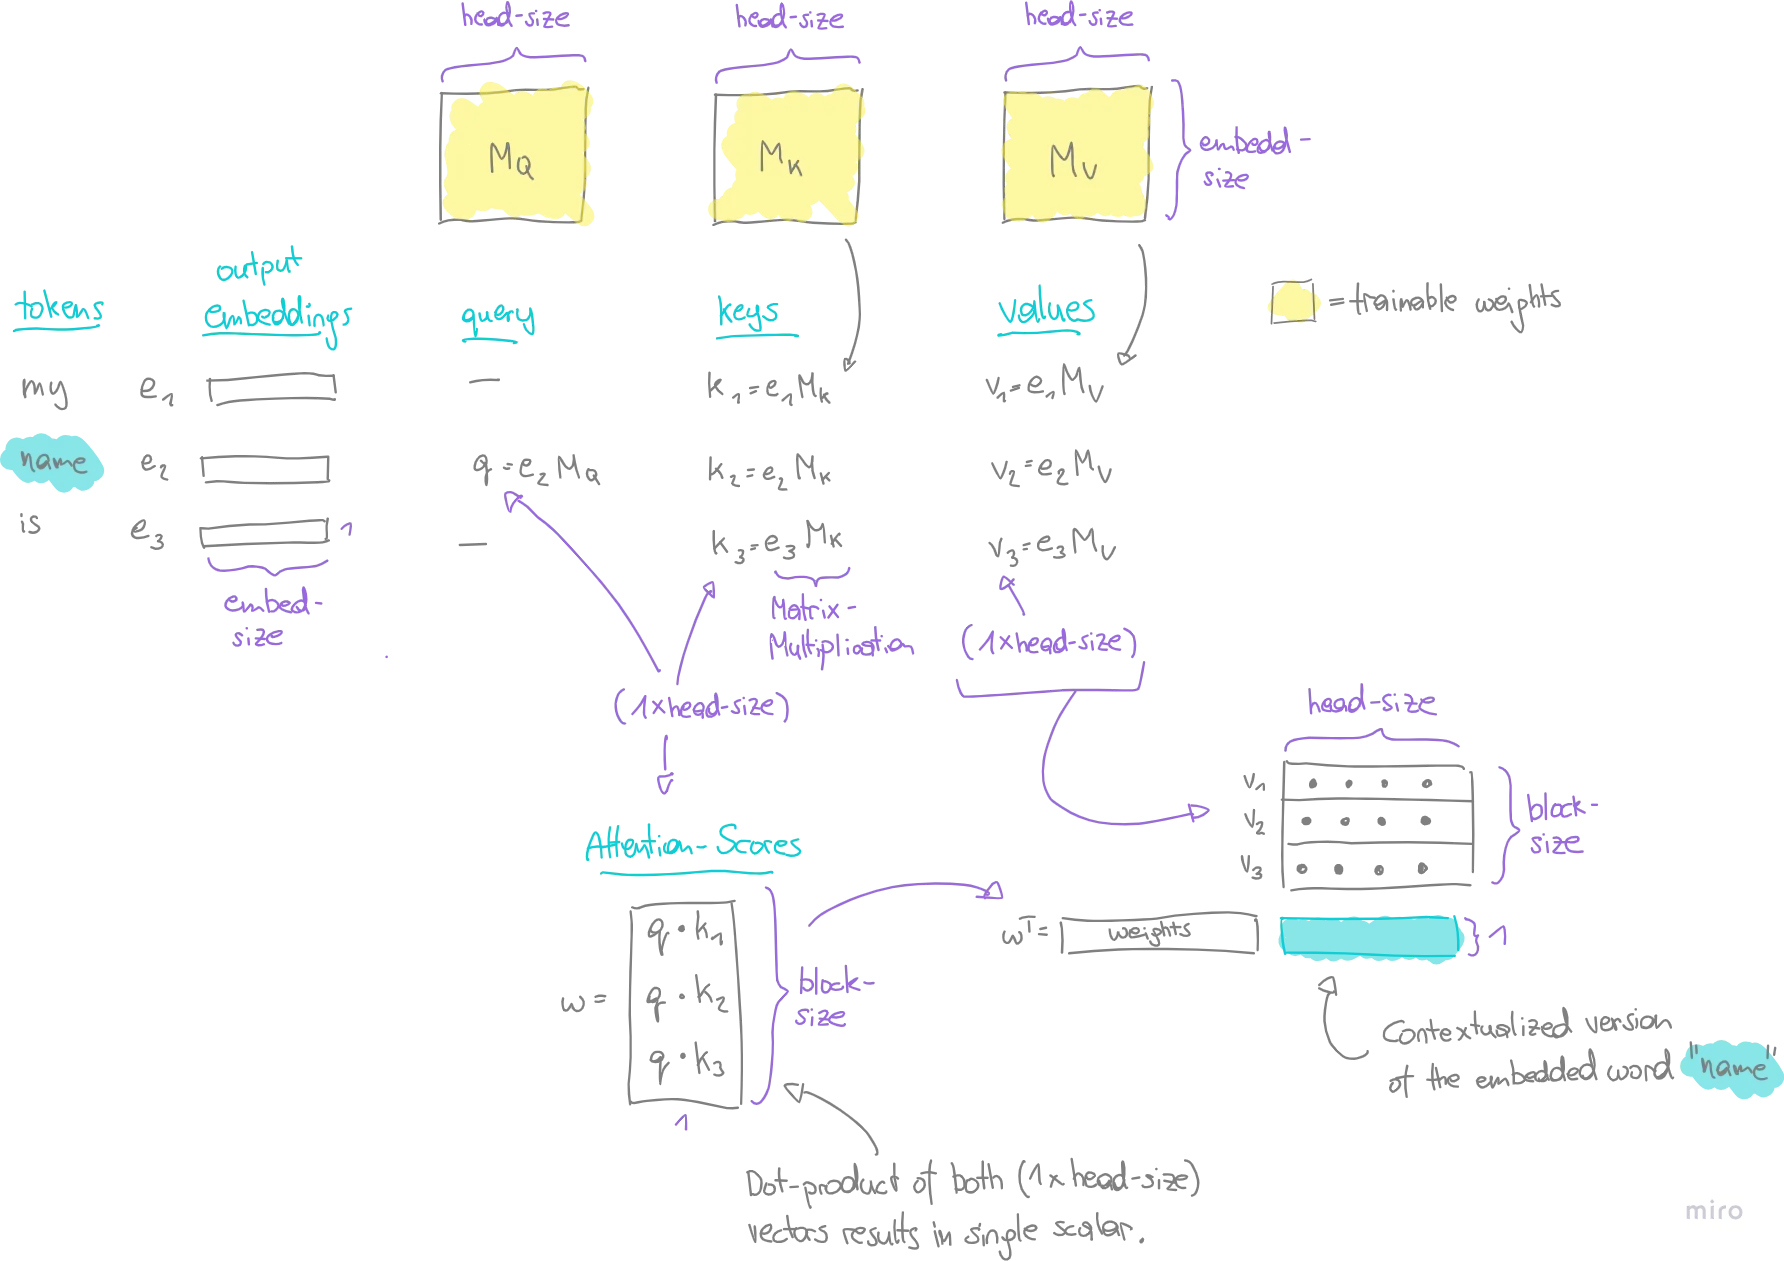 head-size head-size head-size
M_Q M_K M_V
embedd-
size
output
tokens embeddings query keys values
= trainable weights
my e₁ — k₁=e₁M_K v₁=e₁M_V
name e₂ q=e₂M_Q k₂=e₂M_K v₂=e₂M_V
is e₃ 1 — k₃=e₃M_K v₃=e₃M_V
embed-
size
Matrix-
Multiplication
(1xhead-size)
(1xhead-size)
head-size
v₁
v₂
v₃
block-
size
Attention-Scores
w =
q · k₁
q · k₂
q · k₃
1
block-
size
wᵀ= weights 1
Contextualized version
of the embedded word "name"
Dot-product of both (1xhead-size)
vectors results in single scalar.
miro